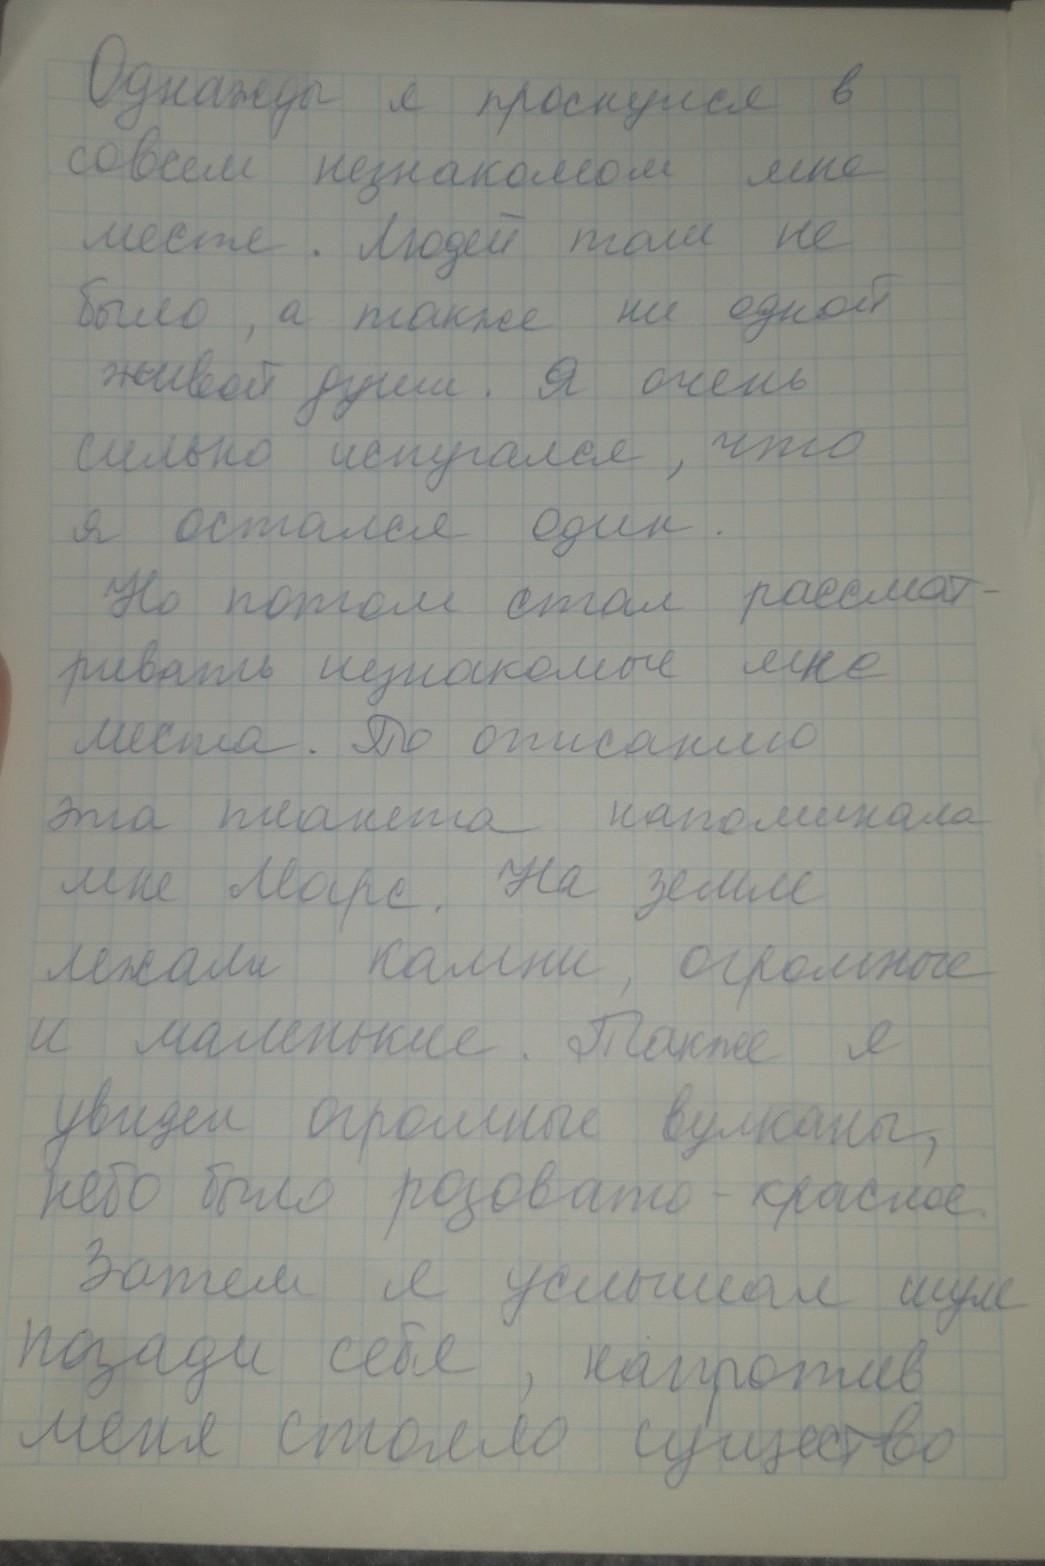 Однажды я проснулся в
совсем незнакомом мне
месте. Людей там не
было, а также ни одной
живой души. Я очень
сильно испугался, что
я остался один.
Но потом стал рассмат-
ривать незнакомые мне
места. По описанию
эта планета напоминала
мне Марс. На земле
лежали камни, огромные
и маленькие. Также я
увидел огромные вулканы,
небо было розовато-красное.
Затем я услышал шум
позади себя, напротив
меня стояло существо